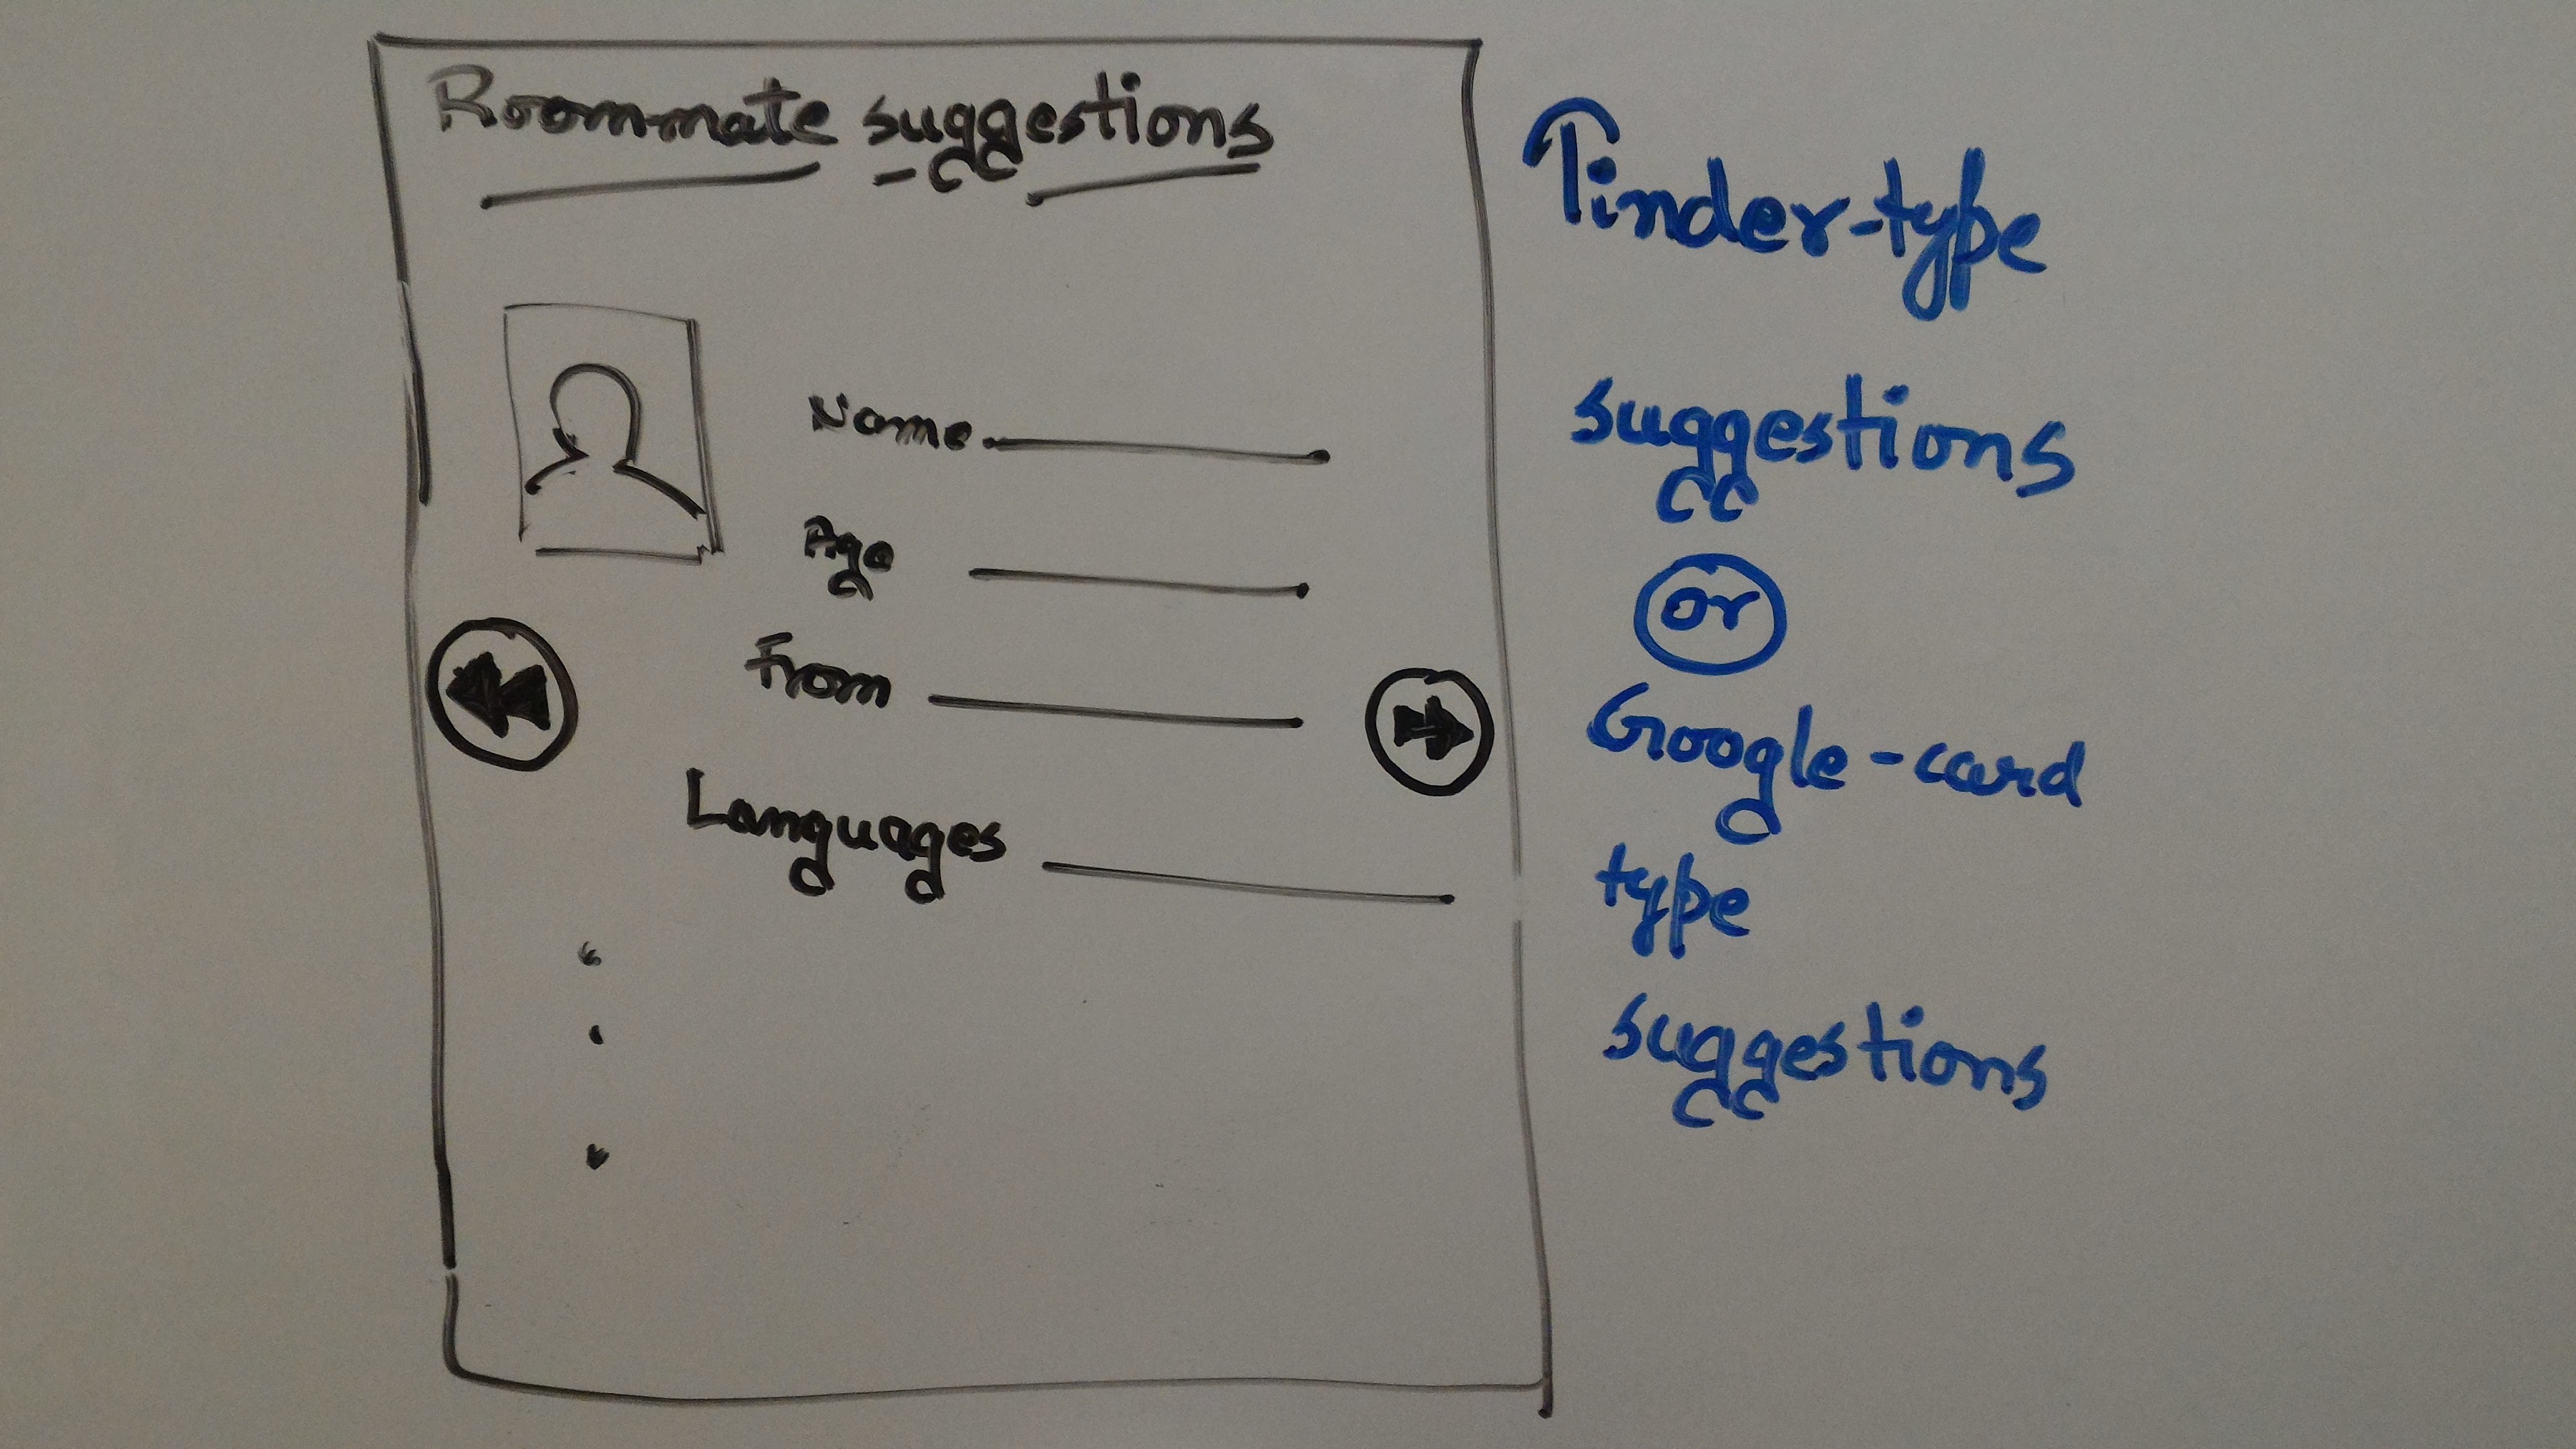 Roommate suggestions
Name
Age
From
Languages
Tinder-type
suggestions
or
Google-card
type
suggestions